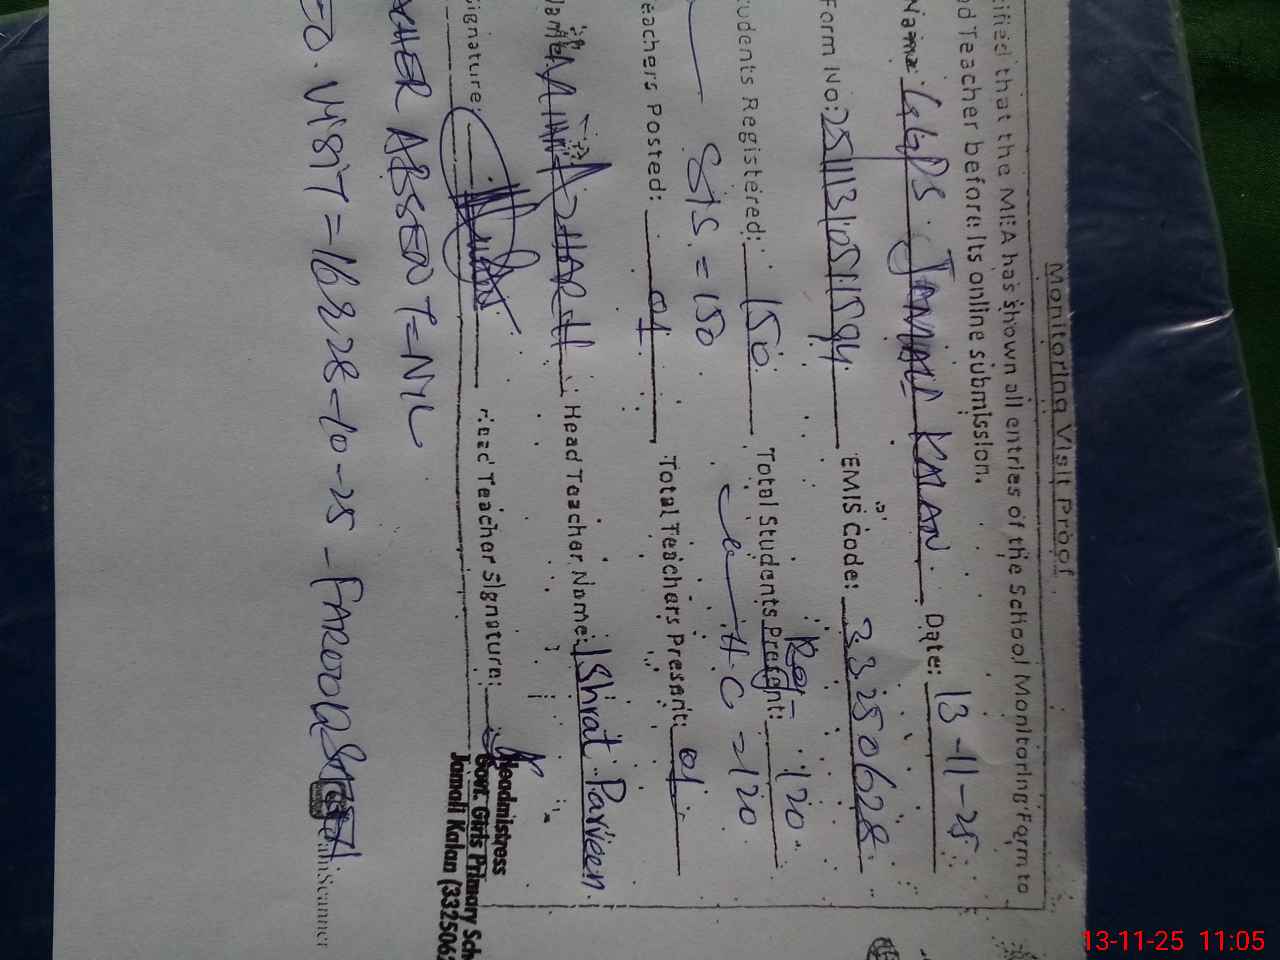 Monitoring Visit Proof
tified that the MEA has shown all entries of the School Monitoring Form to
ad Teacher before its online submission.
Name: GGPS. JAMALI KALAN Date: 13-11-25
Form No: EMIS Code: 33250628
tudents Registered: 150 Total Students Present: 120
SIS = 150 H.C = 120
eachers Posted: 01 Total Teachers Present: 01
AZHAR Head Teacher Name: Ishrat Parveen
Signature: Head Teacher Signature:
Headmistress
Govt. Girls Primary Sch
Jamali Kalan (3325062
ACHER ABSENT = NIL
VISIT = 1628 28-10-25 - FAROOQ
amScanner
13-11-25 11:05